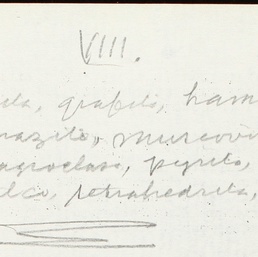 VIII.
ita, grafito, ham
mazito, muscovi
agioclasa, pyrita,
lco, tetrahedrita,